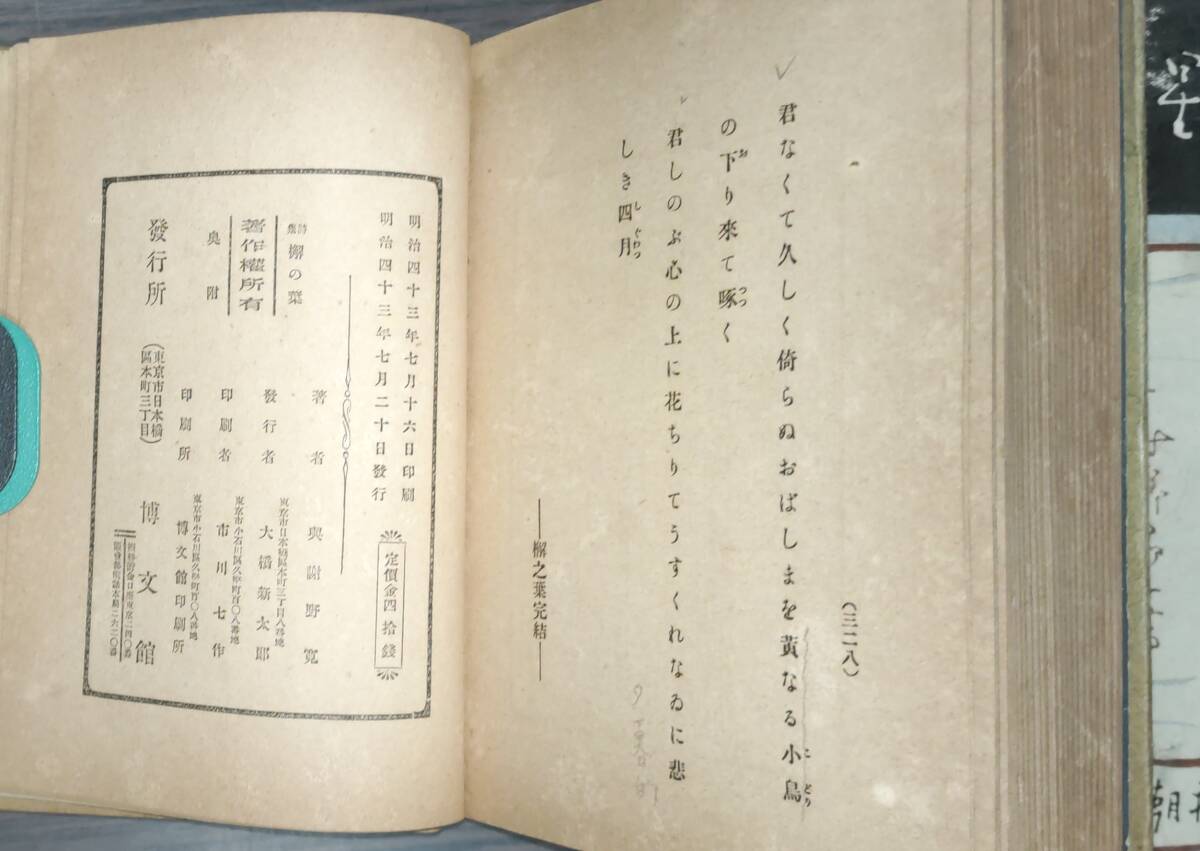 (三二八)
君なくて久しく倚らぬおばしまを黄なる小鳥
の下り來て啄く
君しのぶ心の上に花ちりてうすくれなゐに悲
しき四月
――檞之葉完結――
明治四十三年七月十六日印刷
明治四十三年七月二十日發行
定價金四拾錢
詩集 檞の葉
著作權所有
奥附
著者 與謝野寛
東京市日本橋區本町三丁目八番地
發行者 大橋新太郎
東京市小石川區久堅町百〇八番地
印刷者 市川七作
東京市小石川區久堅町百〇八番地
印刷所 博文館印刷所
發行所 (東京市日本橋區本町三丁目) 博文館